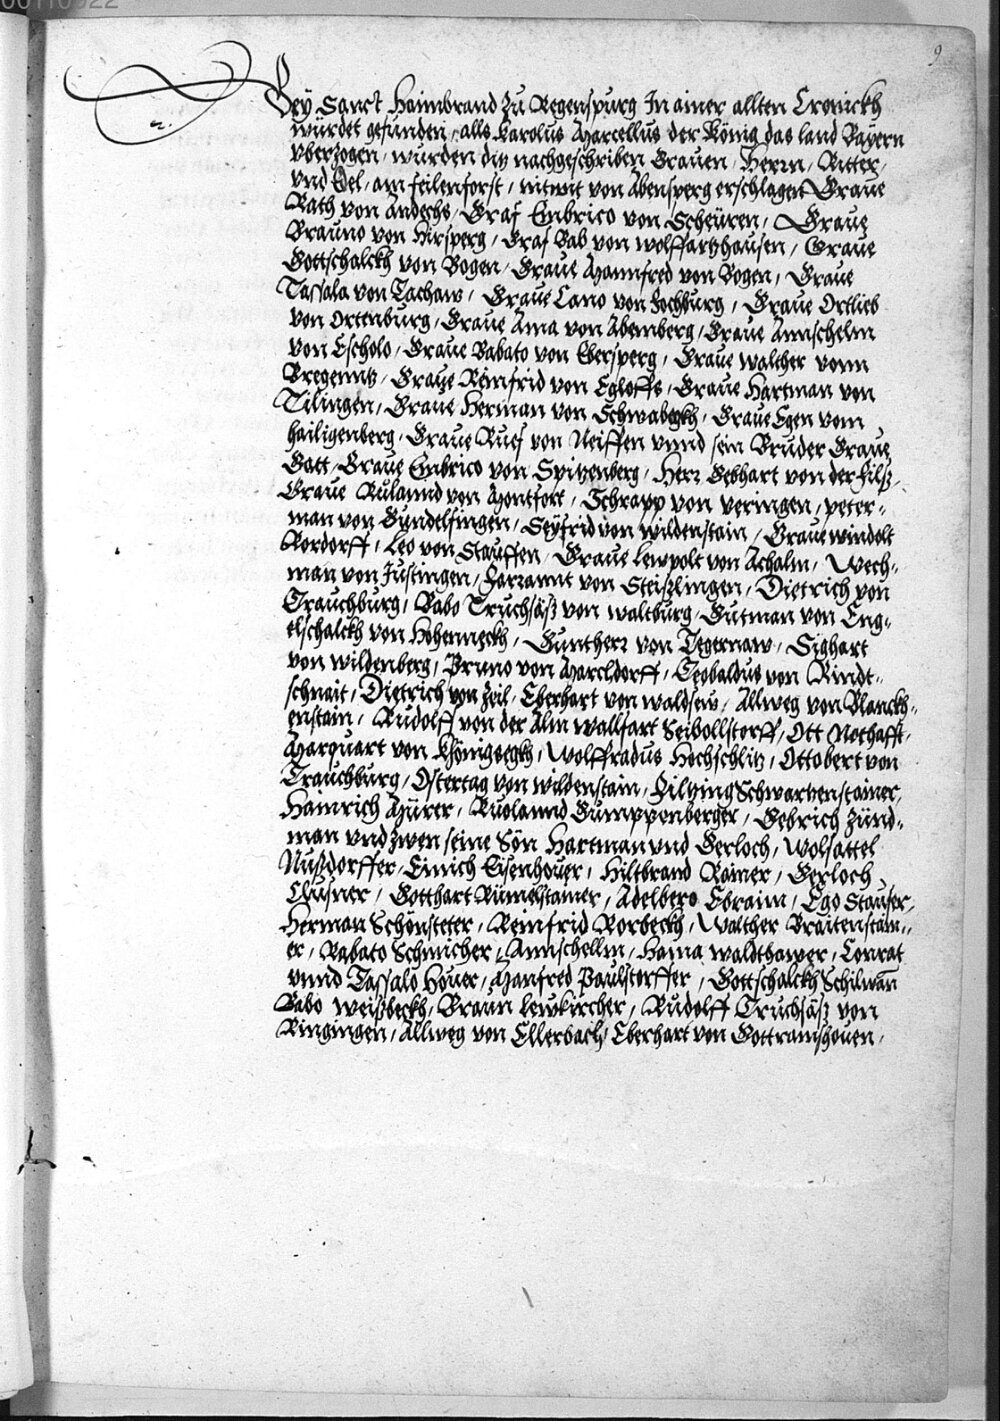 00110922
9
Bey Sanct Haimbrand zu Regenspurg In ainer allten Cronickh
würdet gefunden, alls Karolus Marcellus der König das land Bayern
vberzogen, wurden die nachgeschriben Grauen, Herrn, Ritter,
vnd Edel, am feilenforst, mitwit von Abensperg erschlagen Graue
Rath von Andechs, Graf Embrico von Scheüren, Graue
Brauno von Hirsperg, Graf Bab von wolffartzhausen, Graue
Gottschalckh von Bogen, Graue Mannfred von Bogen, Graue
Tassala von Cachaw, Graue Cano von Rochburg, Graue Ortlieb
von Ortenburg, Graue Ama von Abemberg, Graue Annschelm
von Escholo, Graue Babato von Ebersperg, Graue walther vonn
Bregenntz, Graue Reinfrid von Egloffs, Graue Hartman von
Tilingen, Graue Herman von Schwabegkh, Graue Egen vom
hailigenberg, Graue Ruef von Neiffen vnnd sein Bruder Graue
Gatt, Graue Embrico von Spitzenberg, Herr Gebhart von der Filß,
Graue Rulannd von Montfort, Schrapp von Veringen, peter„
man von Gundelfingen, Seyfrid von wildenstain, Graue windolt
Rordorff, Leo von Stauffen, Graue Lewpolt von Achalm, Wech„
man von Justingen, Farramt von Steißlingen, Dietrich von
Trauchburg, Babo Truchsäß von waltburg, Gutman von Eng„
elschalckh von Hohenneckh, Gunther von Tegernaw, Sighart
von wildenberg, Bruno von Marcldorff, Teobaldus von Rindt„
schnait, Dietrich von Zeil, Eberhart von waldsew, Allweg von Planckh„
enstain, Rudolff von der Alm wallfart Seibollstorff, Ott Nothafft,
Marquart von Khönigsegkh, Wolffradus Hochschlitz, Ottobert von
Trauchburg, Ostertag von wildenstain, Hiltzing Schwartzenstainer,
Hainrich Mürer, Ruolannd Gumppenberger, Gebrich Zünd„
man vnd zwen seine Sön Hartman vnd Gerloch, Wolfsattel
Nußdorffer, Einich Eisenhouer, Hiltbrand Rainer, Gerloch
Clusner, Gotthart Rümelstainer, Adelbero Ebraim, Ego Staufer,
Herman Schönsteter, Reinfrid Rorbeckh, Walther Braitenstain„
er, Rabato Schmicher, Annschellm, Haina waldthawer, Conrat
vnnd Tassalo Houer, Manfred Paulstorffer, Gottschalckh Schilwan
Babo weißbeckh, Braun Lewkircher, Rudolff Truchsäß von
Ringingen, Allweg von Ellerbach, Eberhart von Gottramshouen,